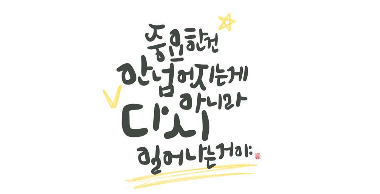 중요한건
안넘어지는게
아니라
다시
일어나는거야